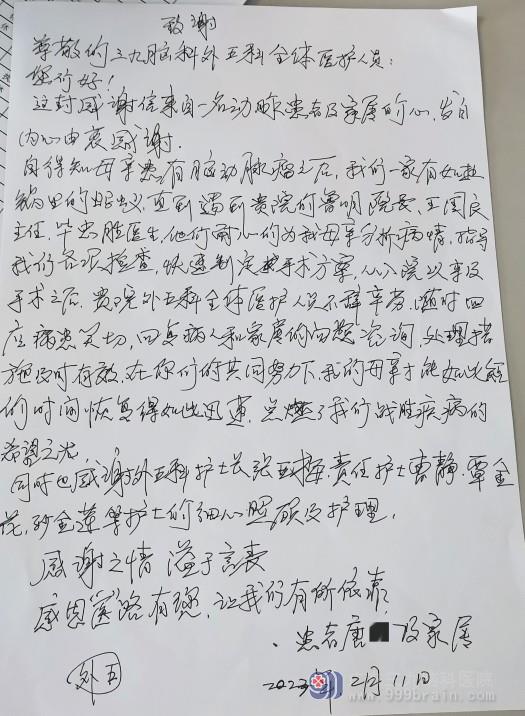 致谢
尊敬的三九脑科外五科全体医护人员:
您们好!
这封感谢信来自一名动脉患者及家属的心,发自
内心由衷感谢.
自得知母亲患有脑动脉瘤之后,我们一家有如热
锅里的蚂蚁,直到遇到贵院的鲁明院长、王国良
主任、毕忠胜医生,他们耐心的为我母亲分析病情,指导
我们各项检查,快速制定手术方案,从入院以来及
手术之后,贵院外五科全体医护人员不辞辛劳,随时回
应病患关切,回复病人和家属的问题咨询,处理措
施及时有效,在你们的共同努力下,我的母亲才能如此短
的时间恢复得如此迅速,点燃了我们战胜疾病的
希望之光,
同时也感谢外五科护士长张玉梅,责任护士曹静、覃金
花、孙金莲等护士的细心照顾及护理.
感谢之情 溢于言表
感恩"医"路有您,让我们有所依靠,
患者唐 及家属
外五
2023年,2月11日
脑科医院
www.999brain.com